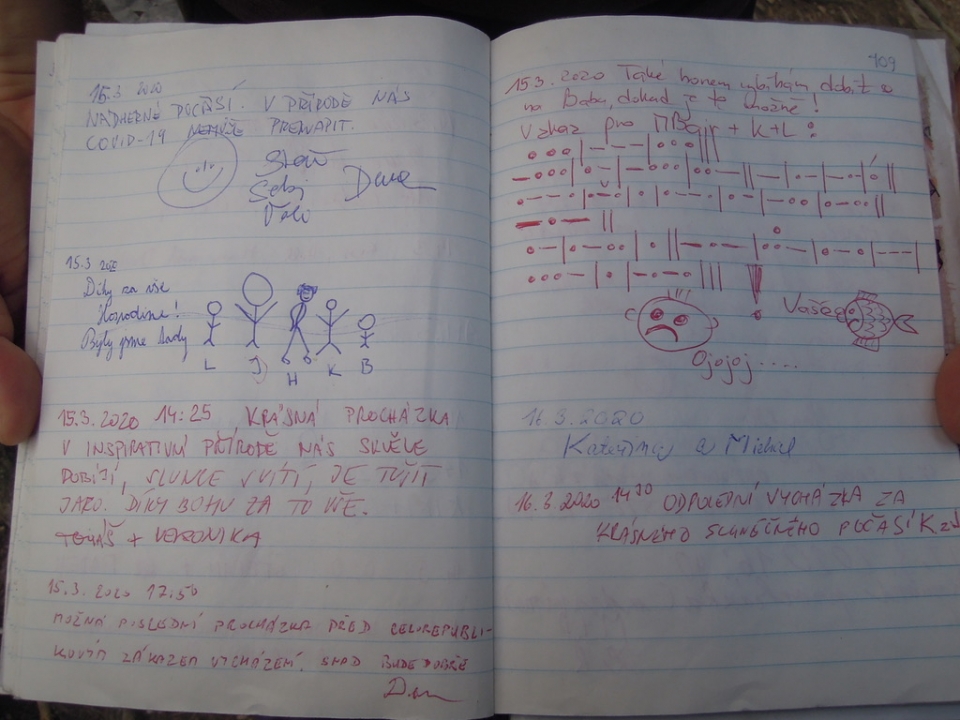 15.3 2020
NÁDHERNÉ POČASÍ. V PŘÍRODĚ NÁS
COVID-19 NEMŮŽE PŘEKVAPIT.
Dana
15.3 2020
Díky za vše
Hospodine!
Byly jsme tady
L J H K B
15.3.2020 14:25 KRÁSNÁ PROCHÁZKA
V INSPIRATIVNÍ PŘÍRODĚ NÁS SKVĚLE
DOBÍJÍ, SLUNCE SVÍTÍ, JE CÍTIT
JARO. DÍKY BOHU ZA TO VŠE.
TOMÁŠ + VERONIKA
15.3. 2020 17:50
MOŽNÁ POSLEDNÍ PROCHÁZKA PŘED CELOREPUBLI-
KOVÝM ZÁKAZEM VYCHÁZENÍ. SNAD BUDE DOBŘE
109
15.3. 2020 Také honem vybíhám dobít se
na Babu, dokud je to možné!
Vzkaz pro + K + L:
Vašec
Ojojoj.....
16.3.2020
Kateřiny a Michael
16.3 2020 14³⁰ ODPOLEDNÍ VYCHÁZKA ZA
KRÁSNÉHO SLUNEČNÉHO POČASÍ